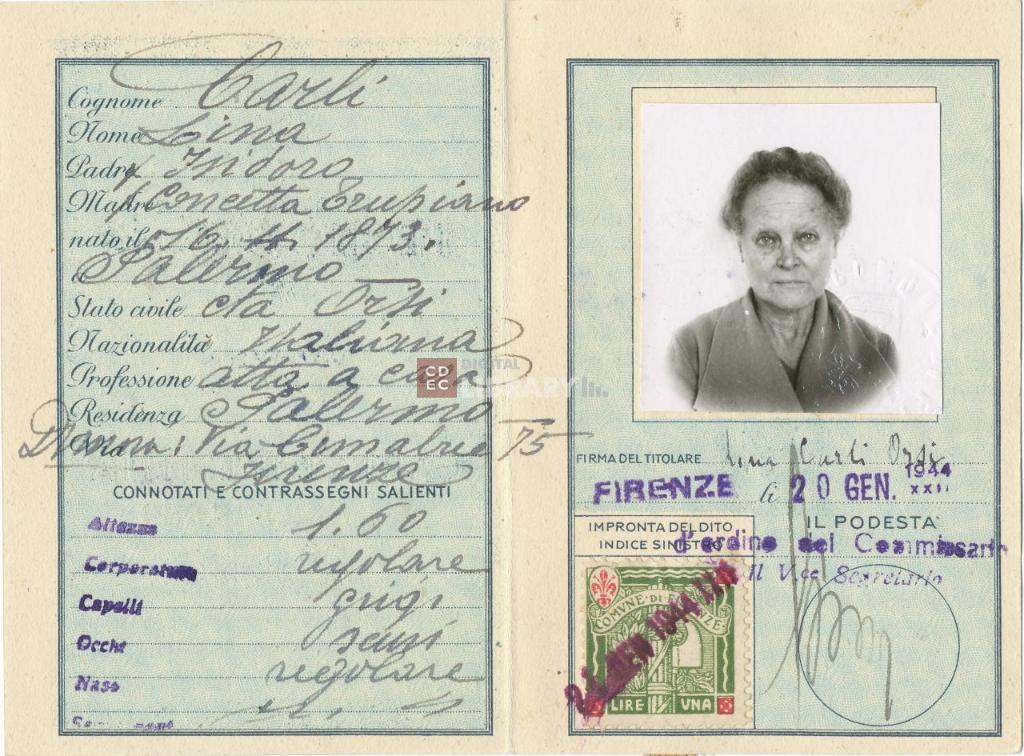 Cognome Carli
Nome Lina
Padre Isidoro
Madre Concetta
nato il 1873.
Palermo
Stato civile cta Orsi
Nazionalità Italiana
Professione atta a casa
Residenza Palermo
Via 75
Firenze
CONNOTATI E CONTRASSEGNI SALIENTI
Altezza 1.60
Corporatura regolare
Capelli grigi
Occhi
Naso regolare
CDEC DIGITAL LIBRARY
FIRMA DEL TITOLARE Lina Carli Orsi
FIRENZE li 20 GEN. 1944 XXII
IL PODESTÀ
d'ordine del Commissario
Il Vice Segretario
IMPRONTA DEL DITO
INDICE SINISTRO
COMVNE DI FIRENZE
GEN 1944
LIRE VNA